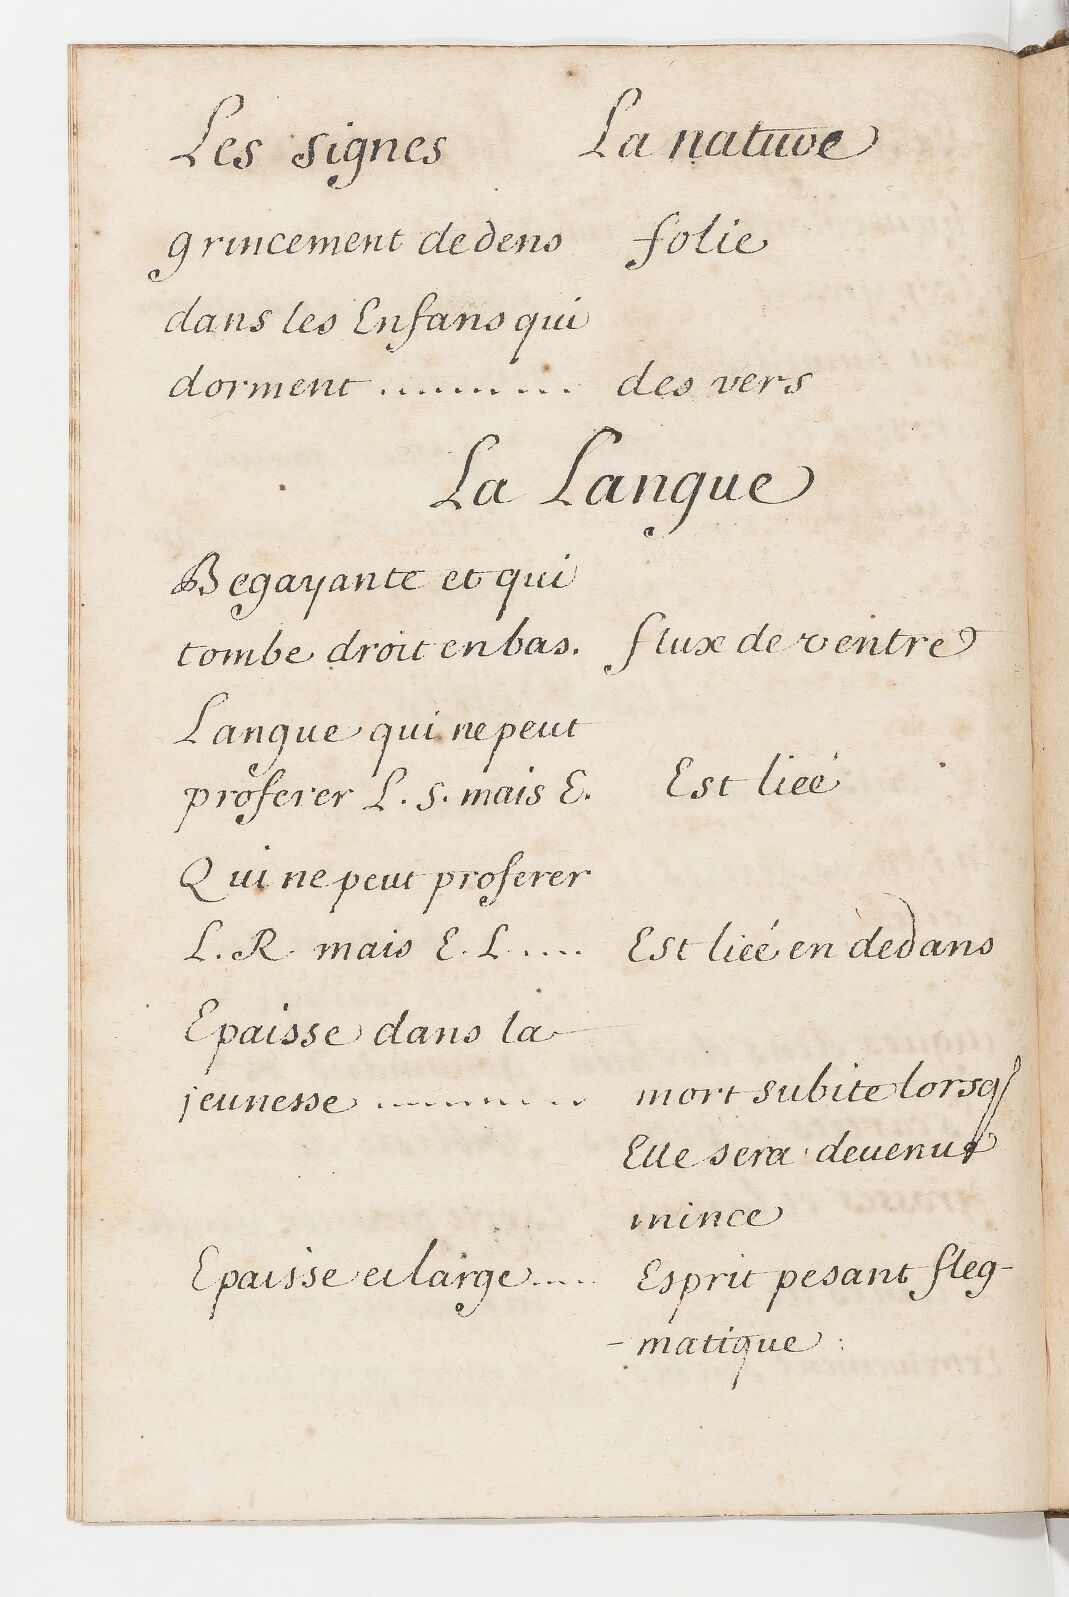 Les signes La nature
grincement de dens folie
dans les Enfans qui
dorment ......... des vers
La Langue
Begayante et qui
tombe droit en bas. flux de ventre
Langue qui ne peut
proferer L. S. mais E. Est lieé
Qui ne peut proferer
L. R. mais E. L .... Est lieé en dedans
Epaisse dans la
jeunesse ......... mort subite lorsq
Elle sera devenue
mince
Epaisse et large..... Esprit pesant fleg-
- matique :